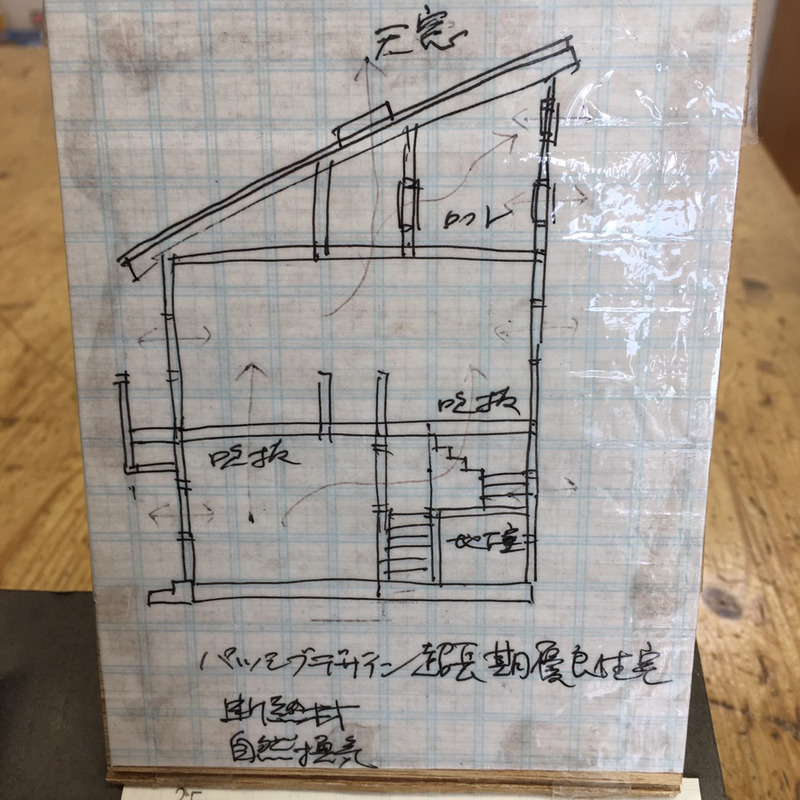 天窓
ロフト
吹抜
吹抜
地下室
パッシブデザイン超長期優良住宅
断熱材
自然換気